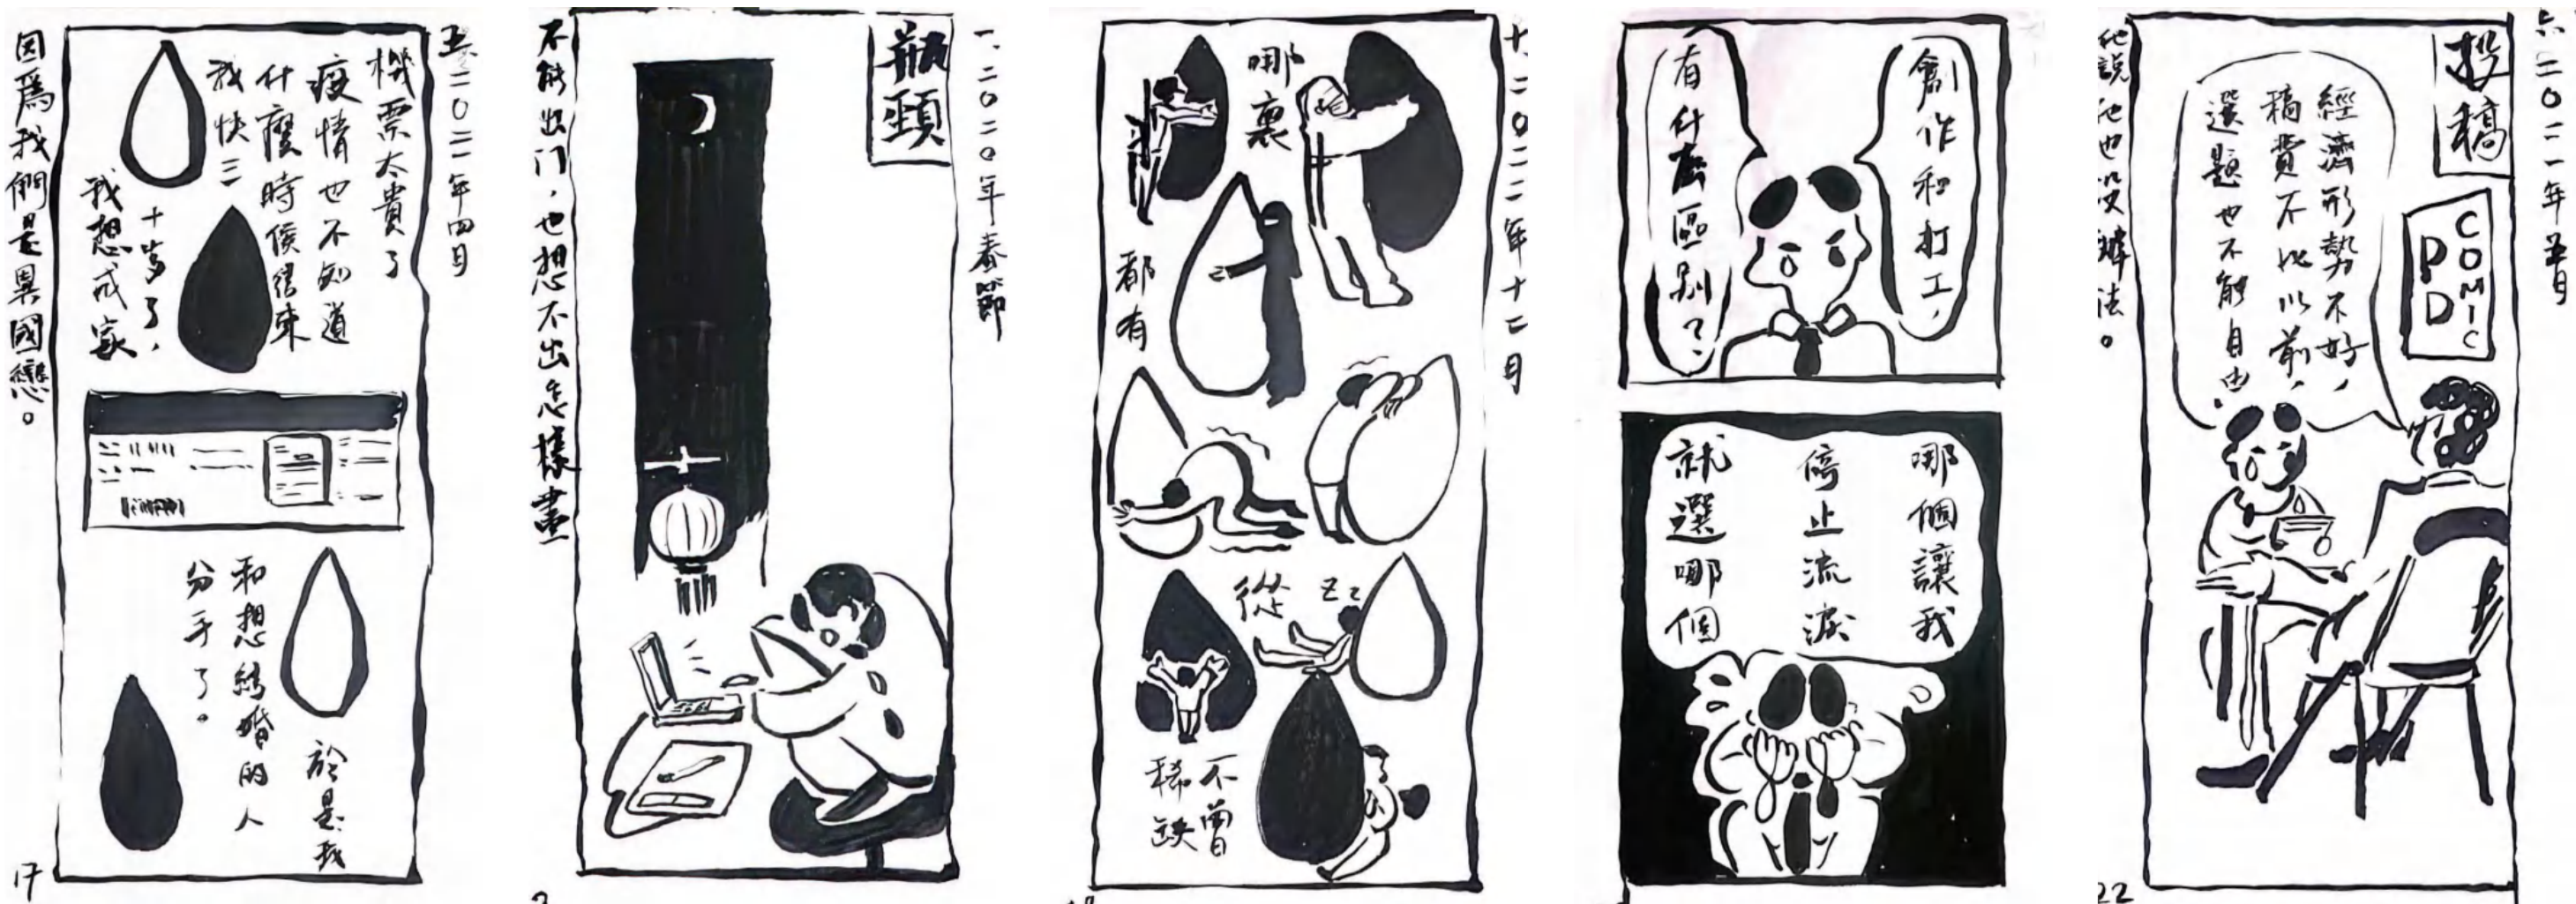 五、二〇二一年四月
機票太貴了
疫情也不知道
什麼時候結束
我快三
十歲了，
我想成家
於是我
和想結婚的人
分手了。
因爲我們是異國戀。
17
一、二〇二〇年春節
瓶頸
不能出门，也想不出怎樣畫
十、二〇二二年十二月
哪裏
都有
從
Zz
不曾
稀缺
創作和打工，
有什麽區别？
哪個讓我
停止流淚
就選哪個
六、二〇二一年五月
投稿
COMIC
PD
經濟形勢不好，
稿費不比以前，
選題也不能自由。
他說他也没辦法。
22